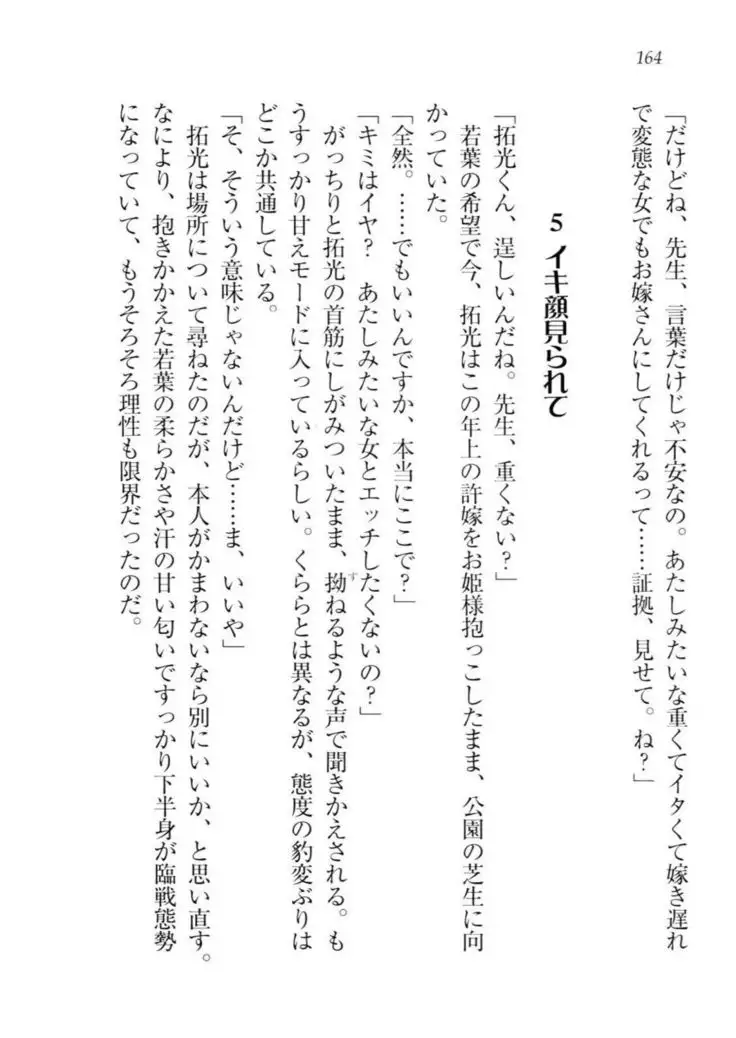 164
「だけどね、先生、言葉だけじゃ不安なの。あたしみたいな重くてイタくて嫁き遅れ
で変態な女でもお嫁さんにしてくれるって……証拠、見せて。ね？」
5 イキ顔見られて
「拓光くん、逞しいんだね。先生、重くない？」
若葉の希望で今、拓光はこの年上の許嫁をお姫様抱っこしたまま、公園の芝生に向
かっていた。
「全然。……でもいいんですか、本当にここで？」
「キミはイヤ？　あたしみたいな女とエッチしたくないの？」
がっちりと拓光の首筋にしがみついたまま、拗ねるような声で聞きかえされる。も
うすっかり甘えモードに入っているらしい。くららとは異なるが、態度の豹変ぶりは
どこか共通している。
「そ、そういう意味じゃないんだけど……ま、いいや」
拓光は場所について尋ねたのだが、本人がかまわないなら別にいいか、と思い直す。
なにより、抱きかかえた若葉の柔らかさや汗の甘い匂いですっかり下半身が臨戦態勢
になっていて、もうそろそろ理性も限界だったのだ。